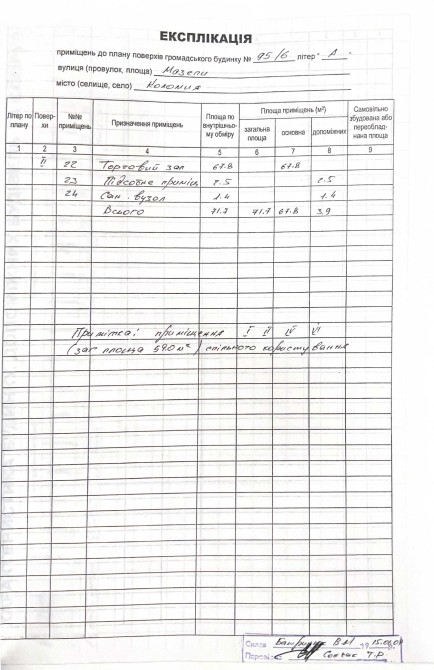 ЕКСПЛІКАЦІЯ
приміщень до плану поверхів громадського будинку № 95/6 літер " А "
вулиця (провулок, площа) Мазепи
місто (селище, село) Коломия
Літер по плану Повер-хи №№ приміщень Призначення приміщень Площа по внутрішньо-му обміру Площа приміщень (м²) загальна площа основна допоміжних Самовільно збудована або переоблад-нана площа
1 2 3 4 5 6 7 8 9
ІІ 22 Торговий зал 67.8 67.8
23 Підсобне приміщ 2.5 2.5
24 Сан. вузол 1.4 1.4
Всього 71.7 71.7 67.8 3.9
Примітка: приміщення І ІІ ІV VI
(заг площа 59.0 м²) спільного користування
Склав В.М 15.00.01
Перевірив Т.Р